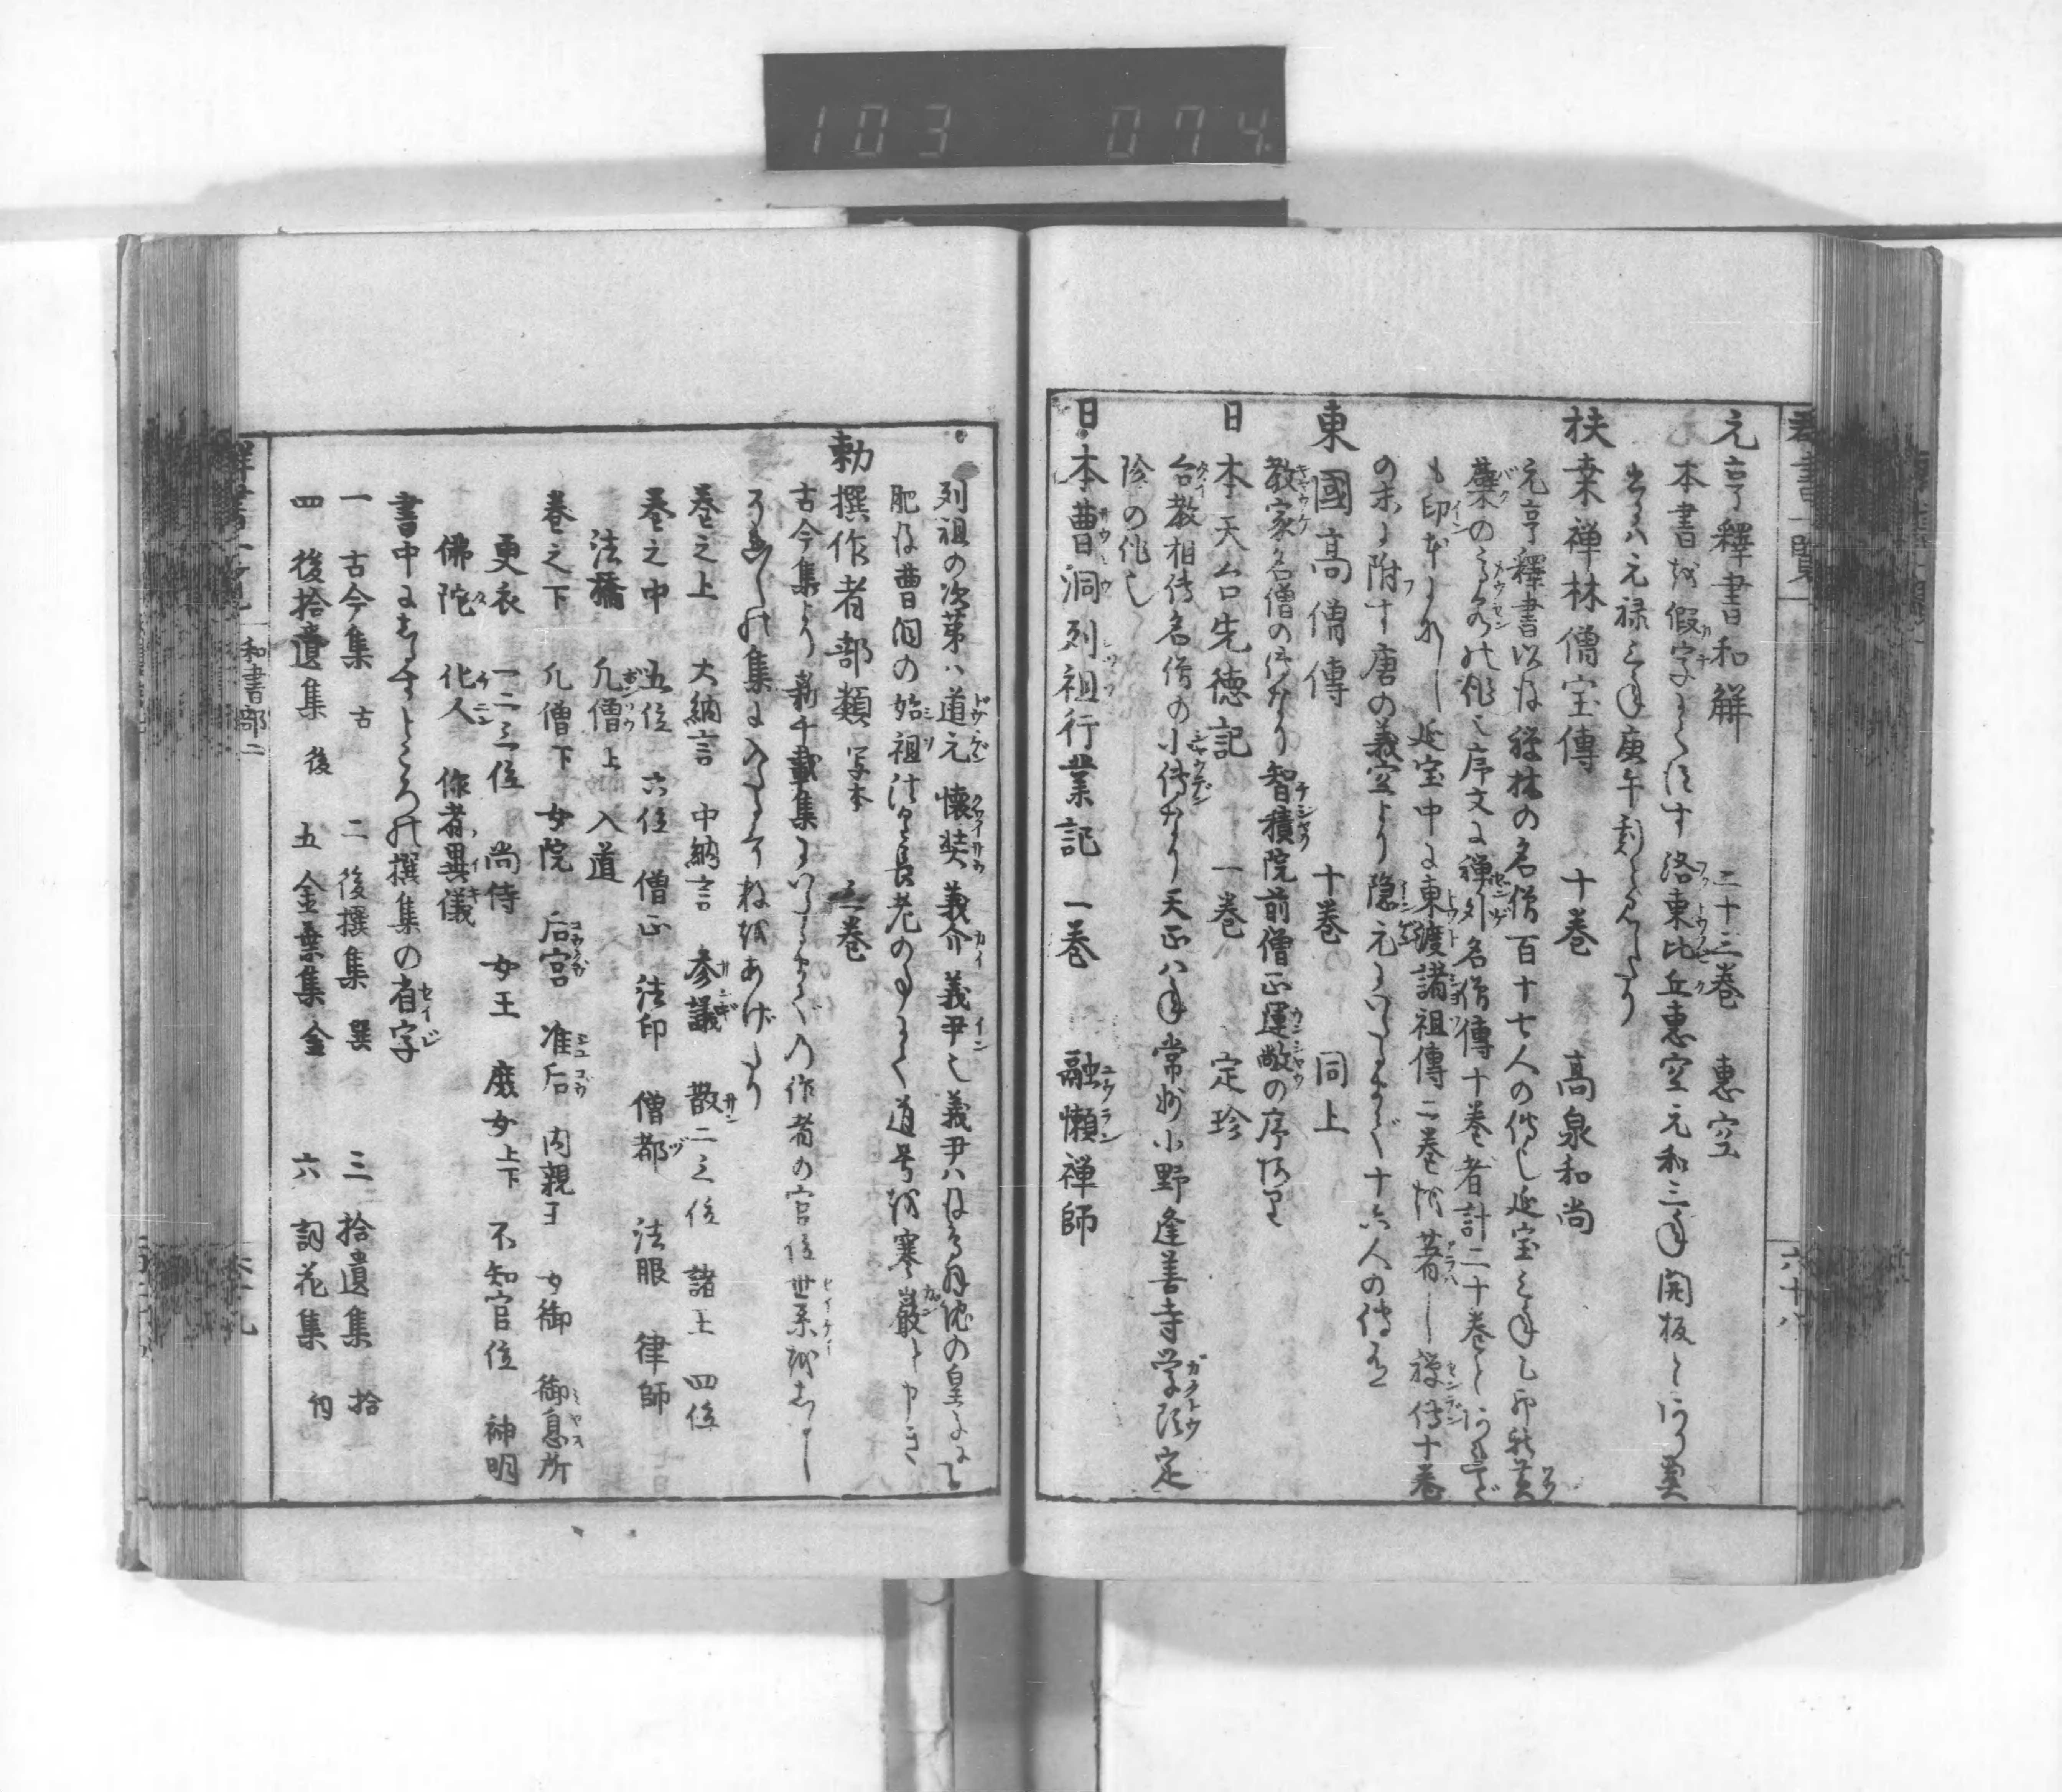 103 074
元亨釋書和解 二十三巻 惠空
本書を假字にて注す洛東比丘惠空元和三年開板とあり異
本ハ元禄三年庚午刻と見へたり
扶桒禅林僧宝傳 十巻 高泉和尚
元亨釋書以後禅林の名僧百十七人の傳也延宝三年乙卯秋黄
檗の高泉の作也序文に禅外名僧傳十巻者計二十巻とあれど
も印本になし延宝中に東渡諸祖傳二巻を著し禅傳十巻
の末に附す唐の義空より隠元にいたるまで十六人の傳也
東國高僧傳 十巻 同上
教家名僧の傳なり智積院前僧正運敞の序あり
日本天台先德記 一巻 定珍
台教相傳名僧の小傳なり天正八年常州小野逢善寺学頭定
珍の作也
日本曹洞列祖行業記 一巻 融懶禅師
六十八
列祖の次第ハ道元懐奘義介義尹也義尹ハ後鳥羽院の皇子にて
肥後曹洞の始祖法皇長老の事にて道号を寒巖と申き
勅撰作者部類 写本 二巻
古今集より新千載集にいたるまでの作者の官位世系を志るし
うたの集に入たる哥数をあげたり
巻之上 大納言 中納言 参議 散二三位 諸王 四位
巻之中 五位 六位 僧正 法印 僧都 法眼 律師
法橋 凡僧上 入道
巻之下 凡僧下 女院 后宮 准后 内親王 女御 御息所
更衣 一二三位 尚侍 女王 庶女上下 不知官位 神明
佛陀 化人 作者異儀
書中に志るすところの撰集の省字
一 古今集 古 二 後撰集 巽 三 拾遺集 拾
四 後拾遺集 後 五 金葉集 金 六 詞花集 詞
和書部二